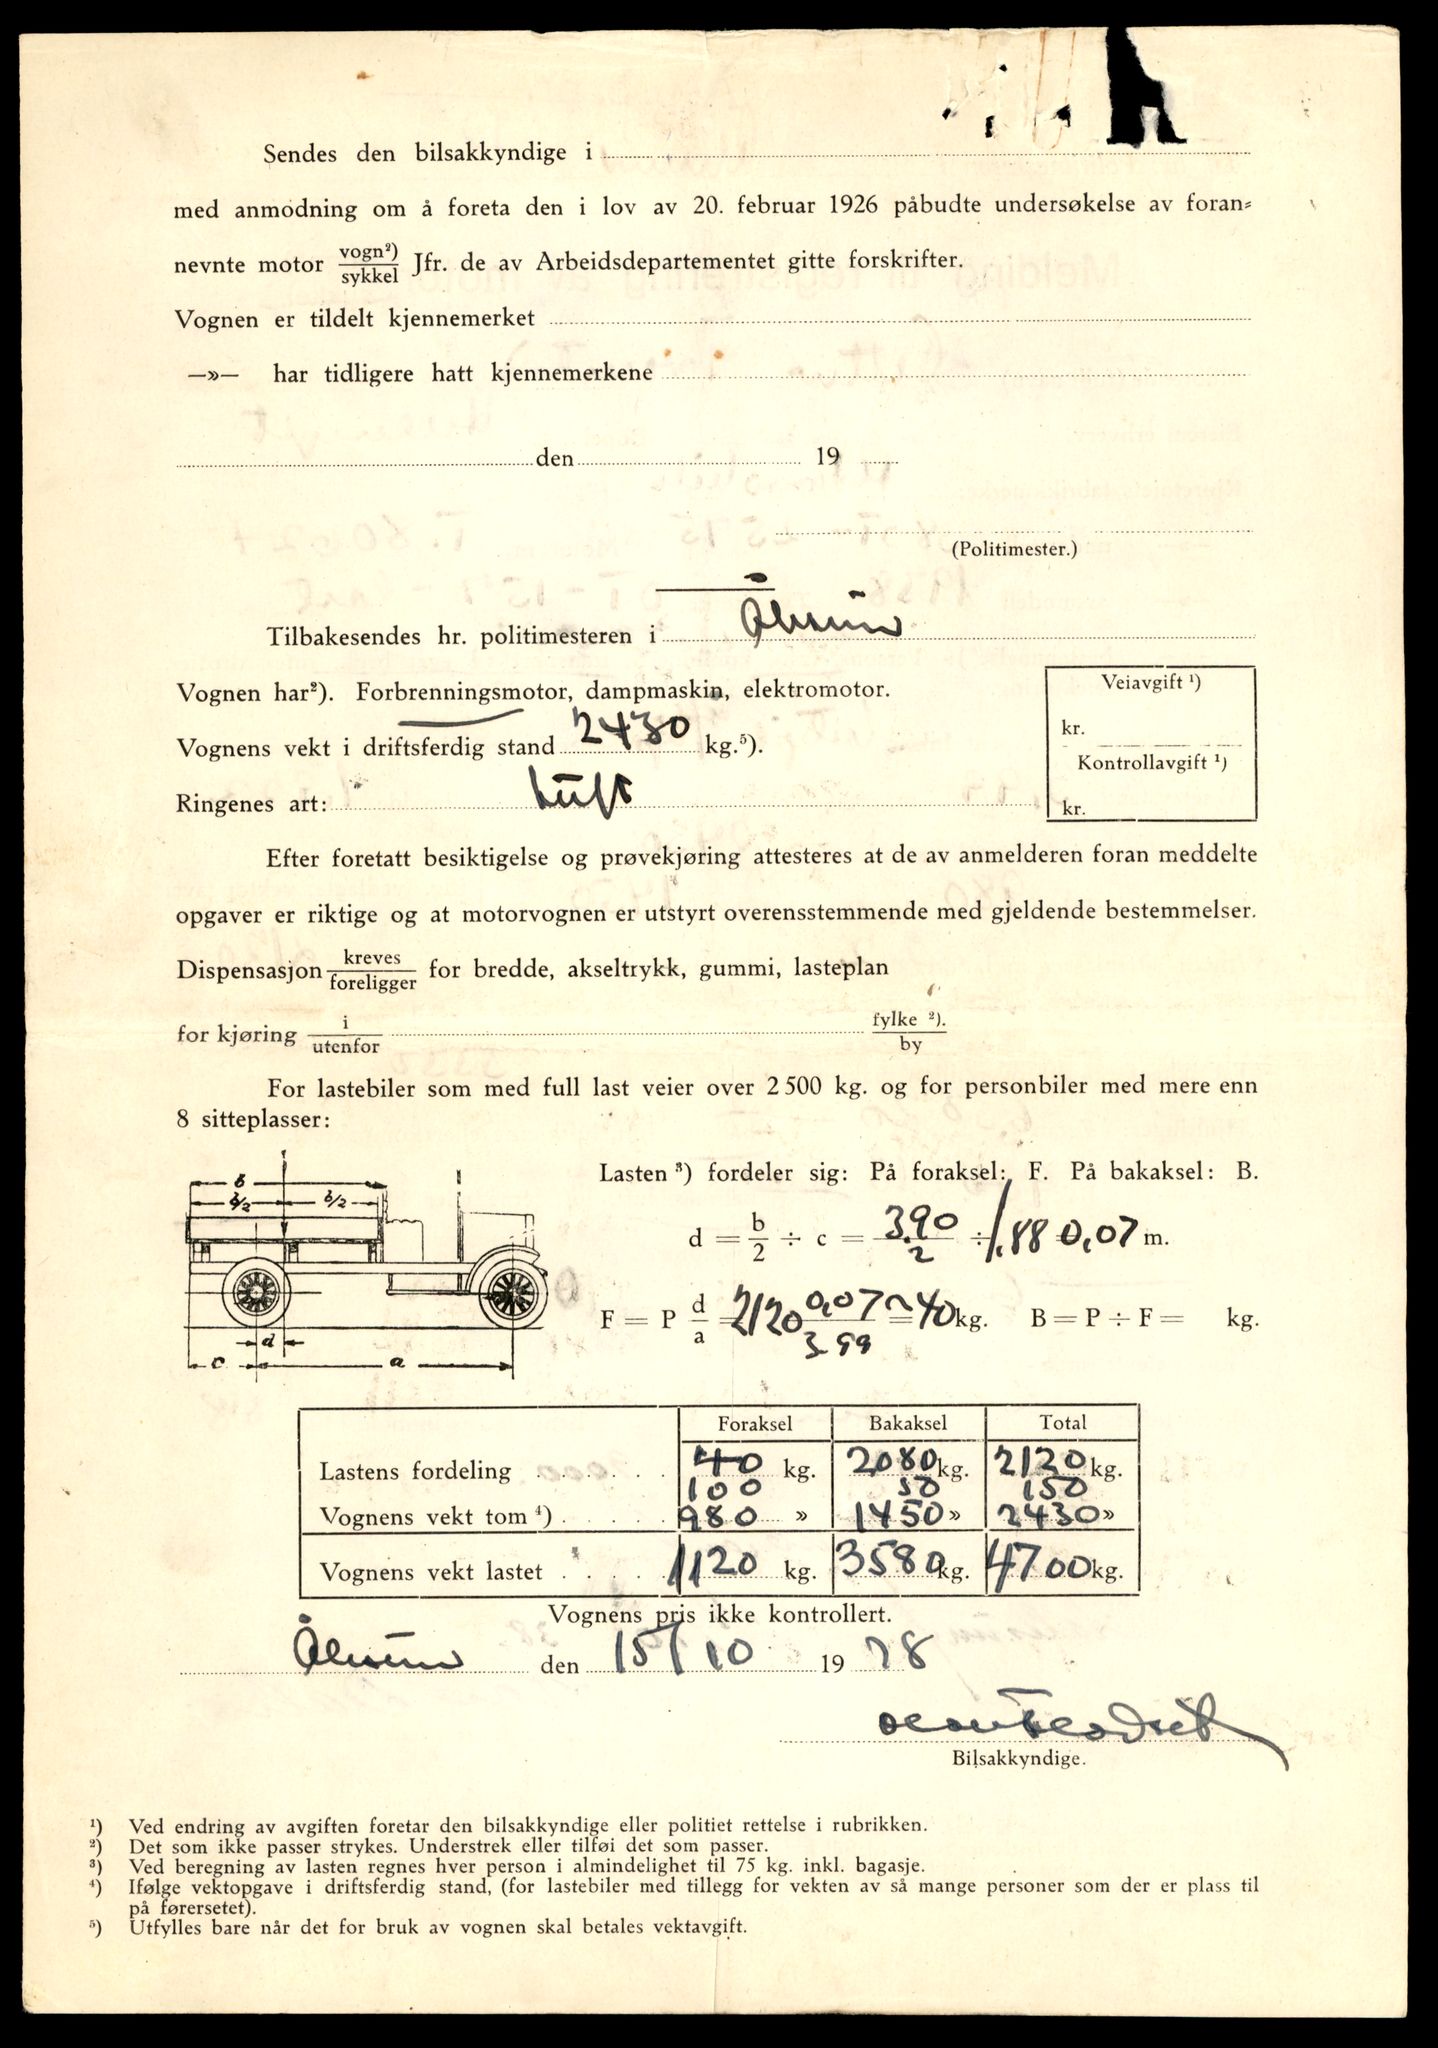 Sendes den bilsakkyndige i
med anmodning om å foreta den i lov av 20. februar 1926 påbudte undersøkelse av foran-
nevnte motor vogn²)/sykkel Jfr. de av Arbeidsdepartementet gitte forskrifter.
Vognen er tildelt kjennemerket
—»— har tidligere hatt kjennemerkene
den 19
(Politimester.)
Tilbakesendes hr. politimesteren i Ålesund
Vognen har²). Forbrenningsmotor, dampmaskin, elektromotor.
Veiavgift ¹)
kr.
Vognens vekt i driftsferdig stand 2430 kg.⁵).
Kontrollavgift ¹)
kr.
Ringenes art: Luft
Efter foretatt besiktigelse og prøvekjøring attesteres at de av anmelderen foran meddelte
opgaver er riktige og at motorvognen er utstyrt overensstemmende med gjeldende bestemmelser.
Dispensasjon kreves/foreligger for bredde, akseltrykk, gummi, lasteplan
for kjøring i/utenfor fylke ²)./by
For lastebiler som med full last veier over 2 500 kg. og for personbiler med mere enn
8 sitteplasser:
b
b/2 b/2
d
c a
Lasten ³) fordeler sig: På foraksel: F. På bakaksel: B.
d = b/2 ÷ c = 3.90/2 ÷ 1.88 0,07 m.
F = P d/a = 2120 0,07/3.99 = ~40 kg. B = P ÷ F = kg.
Foraksel Bakaksel Total
Lastens fordeling . . . . . . 40 kg. 2080 kg. 2120 kg.
100 50 150
Vognens vekt tom ⁴) . . . . . 980 » 1450 » 2430 »
Vognens vekt lastet . . . . 1120 kg. 3580 kg. 4700 kg.
Vognens pris ikke kontrollert.
Ålesund den 15/10 19 38
Bilsakkyndige.
¹) Ved endring av avgiften foretar den bilsakkyndige eller politiet rettelse i rubrikken.
²) Det som ikke passer strykes. Understrek eller tilføi det som passer.
³) Ved beregning av lasten regnes hver person i almindelighet til 75 kg. inkl. bagasje.
⁴) Ifølge vektopgave i driftsferdig stand, (for lastebiler med tillegg for vekten av så mange personer som der er plass til
på førersetet).
⁵) Utfylles bare når det for bruk av vognen skal betales vektavgift.